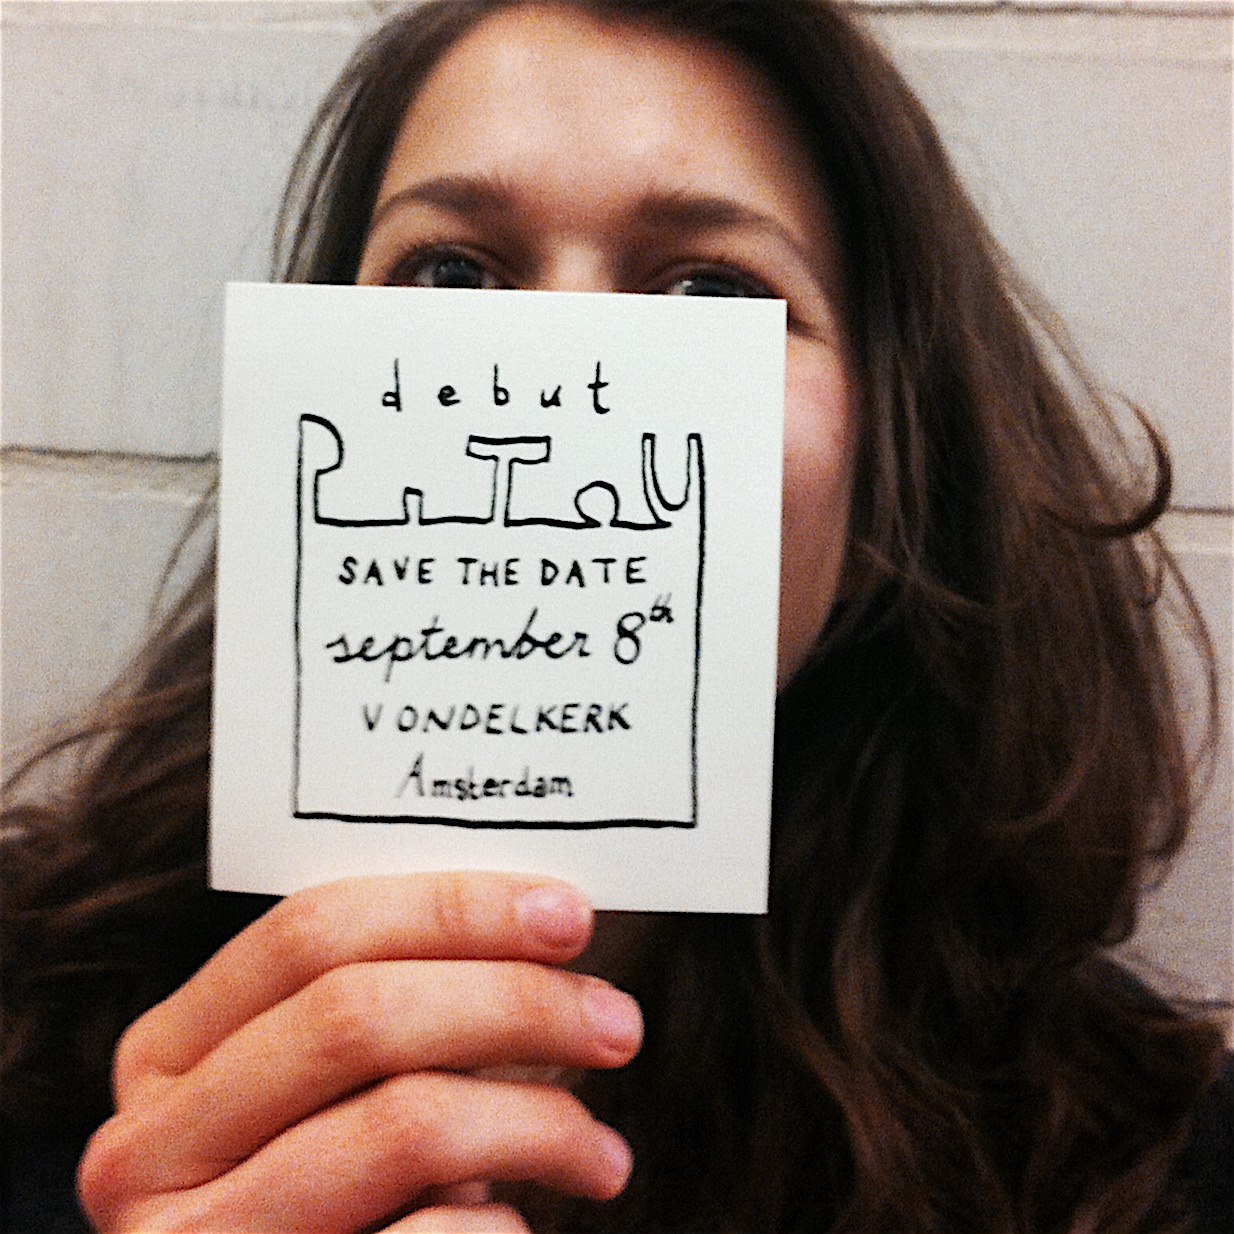 debut
SAVE THE DATE
september 8th
VONDELKERK
Amsterdam